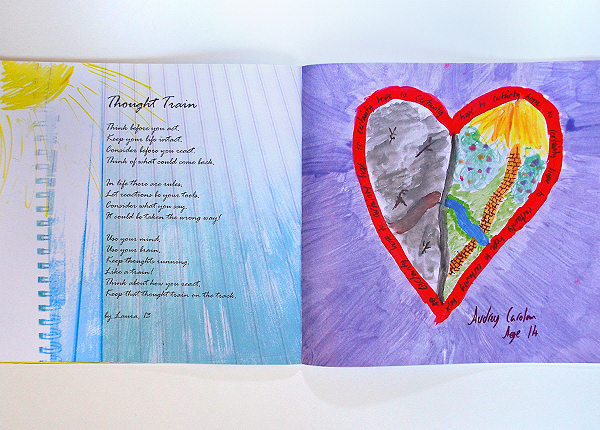 Thought Train
Think before you act,
Keep your life intact,
Consider before you react.
Think of what could come back.
In life there are rules,
Let reactions be your tools.
Consider what you say,
It could be taken the wrong way!
Use your mind,
Use your brain.
Keep thoughts running,
Like a train!
Think about how you react,
Keep that thought train on the track.
by Laura, 13
Audrey Carolan
Age 14